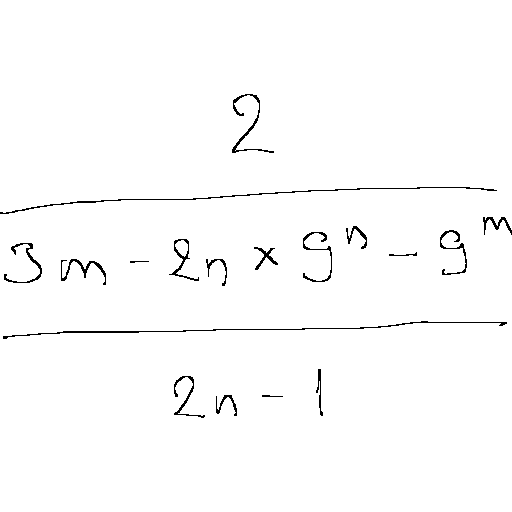 2
3m - 2n × 9ⁿ - 9ᵐ
2n - 1